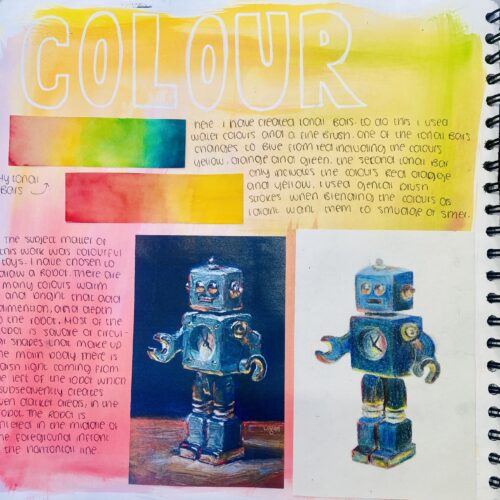 COLOUR
here I have created tonal bars. to do this I used
water colours and a fine brush. one of the tonal bars
changes to Blue from red including the colours
yellow, orange and green. the second tonal bar
only includes the colours Red orange
and yellow. I used gental brush
strokes when blending the colours as
I didnt want them to smudge or smer.
My tonal
Bars
the subject matter of
this work was colourful
toys. I have chosen to
draw a Robot. There are
many colours warm
and bright that add
dimention, and depth
to the robot. Most of the
robot is square or circul-
ar shapes that make up
the main body. there is
harsh light coming from
the left of the robot which
subsequently creates
even darker areas, in the
robot. the Robot is
centered in the middle of
the foreground infront
the horizontal line.